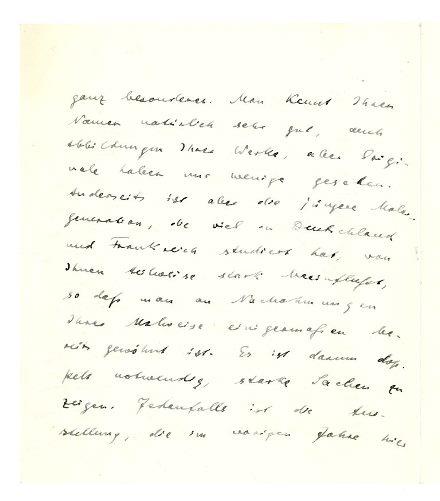 ganz besonderes. Man kennt Ihren
Namen natürlich sehr gut, auch
Abbildungen Ihrer Werke, aber Origi-
nale haben nur wenige gesehen.
Anderseits ist aber die jüngere Maler-
generation, die viel in Deutschland
und Frankreich studiert hat, von
Ihnen teilweise stark beeinflußt,
so daß man an Nachahmungen
Ihrer Malweise einigermaßen be-
reits gewöhnt ist. Es ist darum dop-
pelt notwendig, starke Sachen zu
zeigen. Jedenfalls ist die Aus-
stellung, die im vorigen Jahre hier